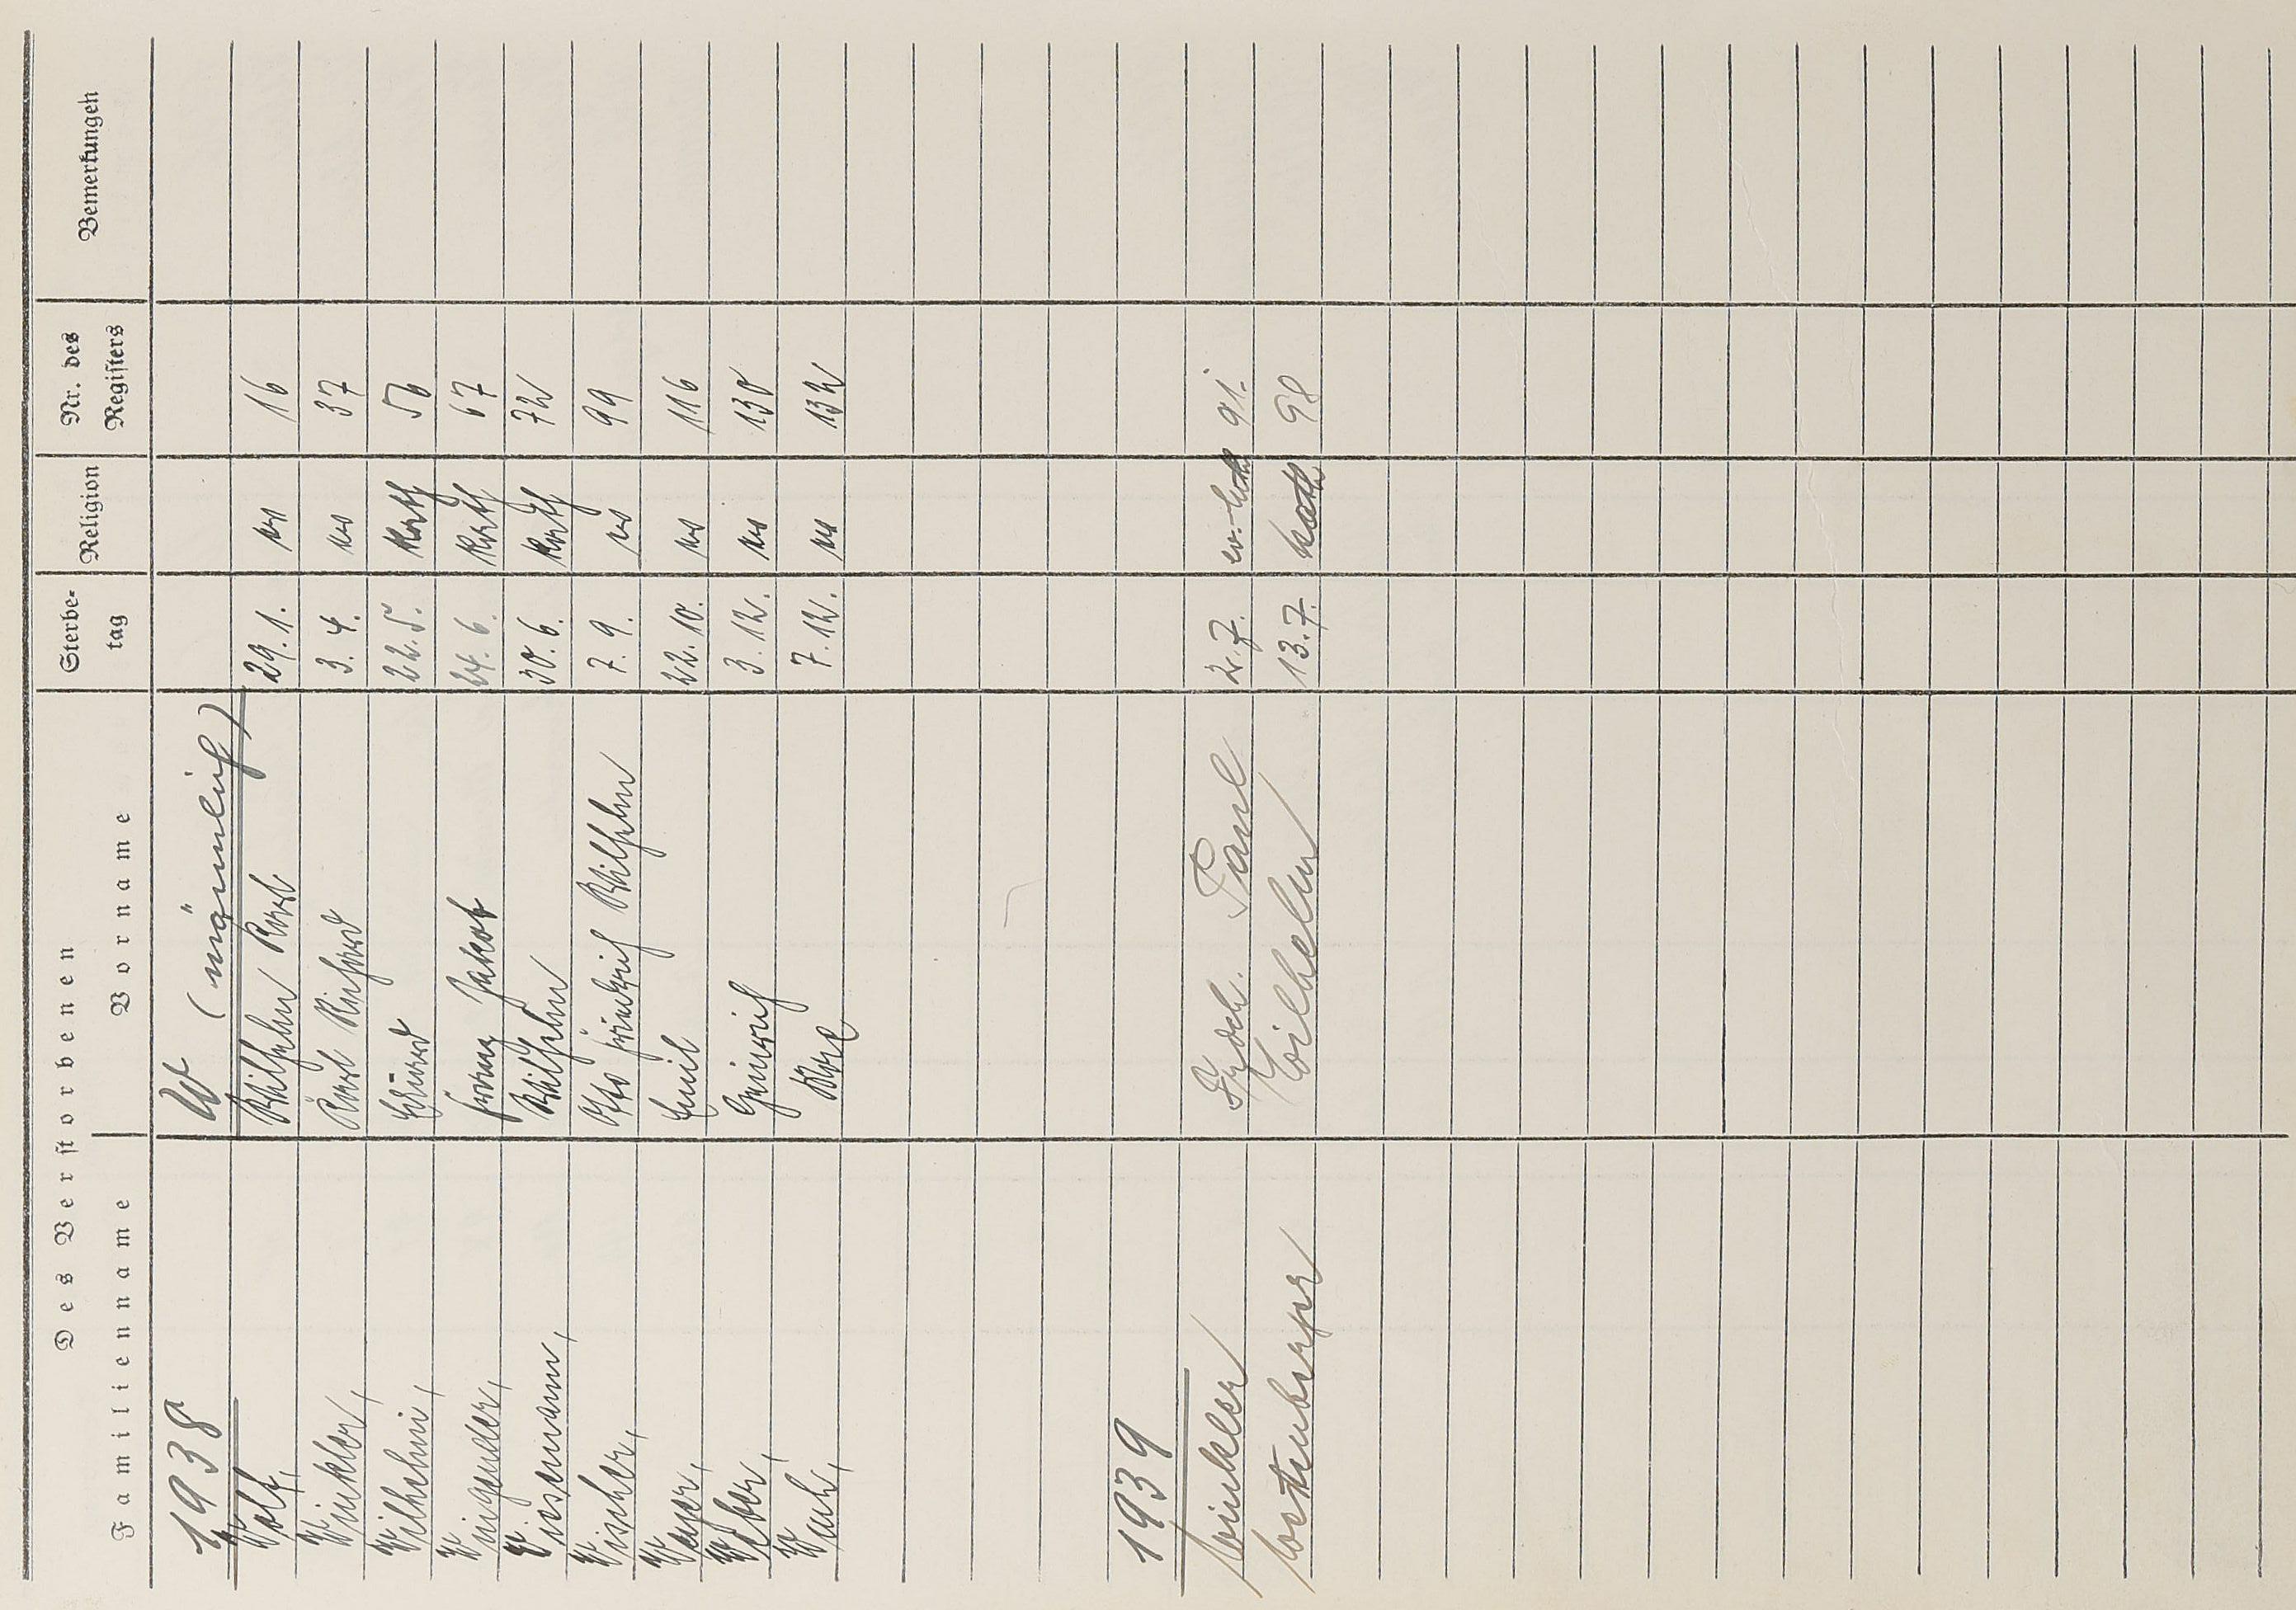 Des Verstorbenen Sterbe- Religion Nr. des Bemerkungen
Familienname Vorname tag Registers
1938 W (männlich)
Wolf, Wilhelm Karl 29. 1. ev 16
Winkler, Karl Richard 3. 4. ev 37
Wilhelmi, Eduard 22. 5. kath 56
Wingender, Franz Jakob 24. 6. kath 67
Wissemann, Wilhelm 30. 6. kath 72
Wischer, Otto Friedrich Wilhelm 7. 9. ev 99
Weyer, Emil 22. 10. ev 116
Weber, Heinrich 3. 12. ev 130
Karl 7. 12. ev 132
1939
Winkler Frdch. Paul 2. 7. ev.-luth 91.
Wilhelm 13. 7. kath 98